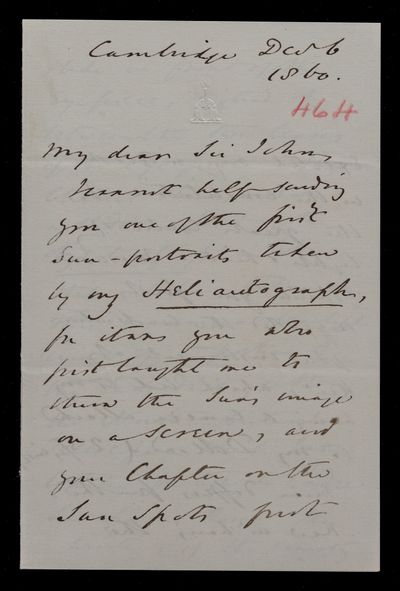 Cambridge Dec 6
1860.
464
My dear Sir John,
I cannot help sending
you one of the first
Sun-portraits taken
by my Heliautograph,
for it was you who
first taught me to
throw the Sun's image
on a screen, and
your Chapter on the
Sun Spots first